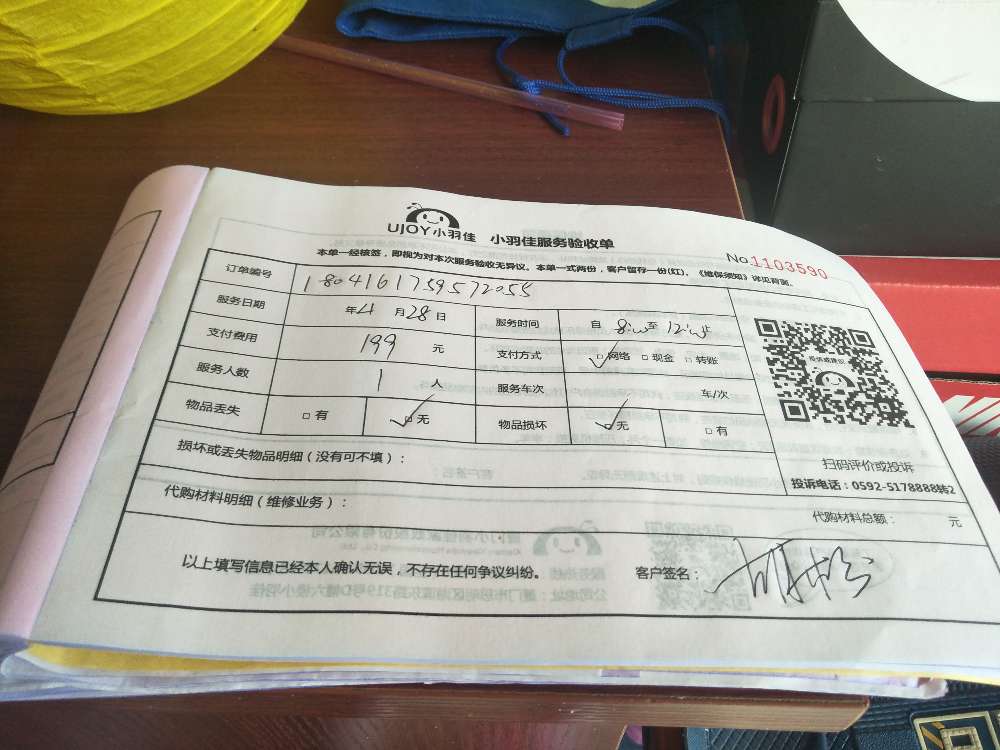 UJOY小羽佳 小羽佳服务验收单
No.1103590
本单一经核签，即视为对本次服务验收无异议。本单一式两份，客户暂存一份(红)。《维保须知》详见背面。
订单编号 180416175957205
服务日期 年4月28日 服务时间 自8:00至12:00止
支付费用 199 元 支付方式 □网络 □现金 □转账
服务人数 1 人 服务车次 车/次
物品丢失 □有 □无 物品损坏 □无 □有
投诉或建议
扫码评价或投诉
投诉电话：0592-5178888转2
损坏或丢失物品明细（没有可不填）：
代购材料明细（维修业务）：
代购材料总额： 元
以上填写信息已经本人确认无误，不存在任何争议纠纷。 客户签名：